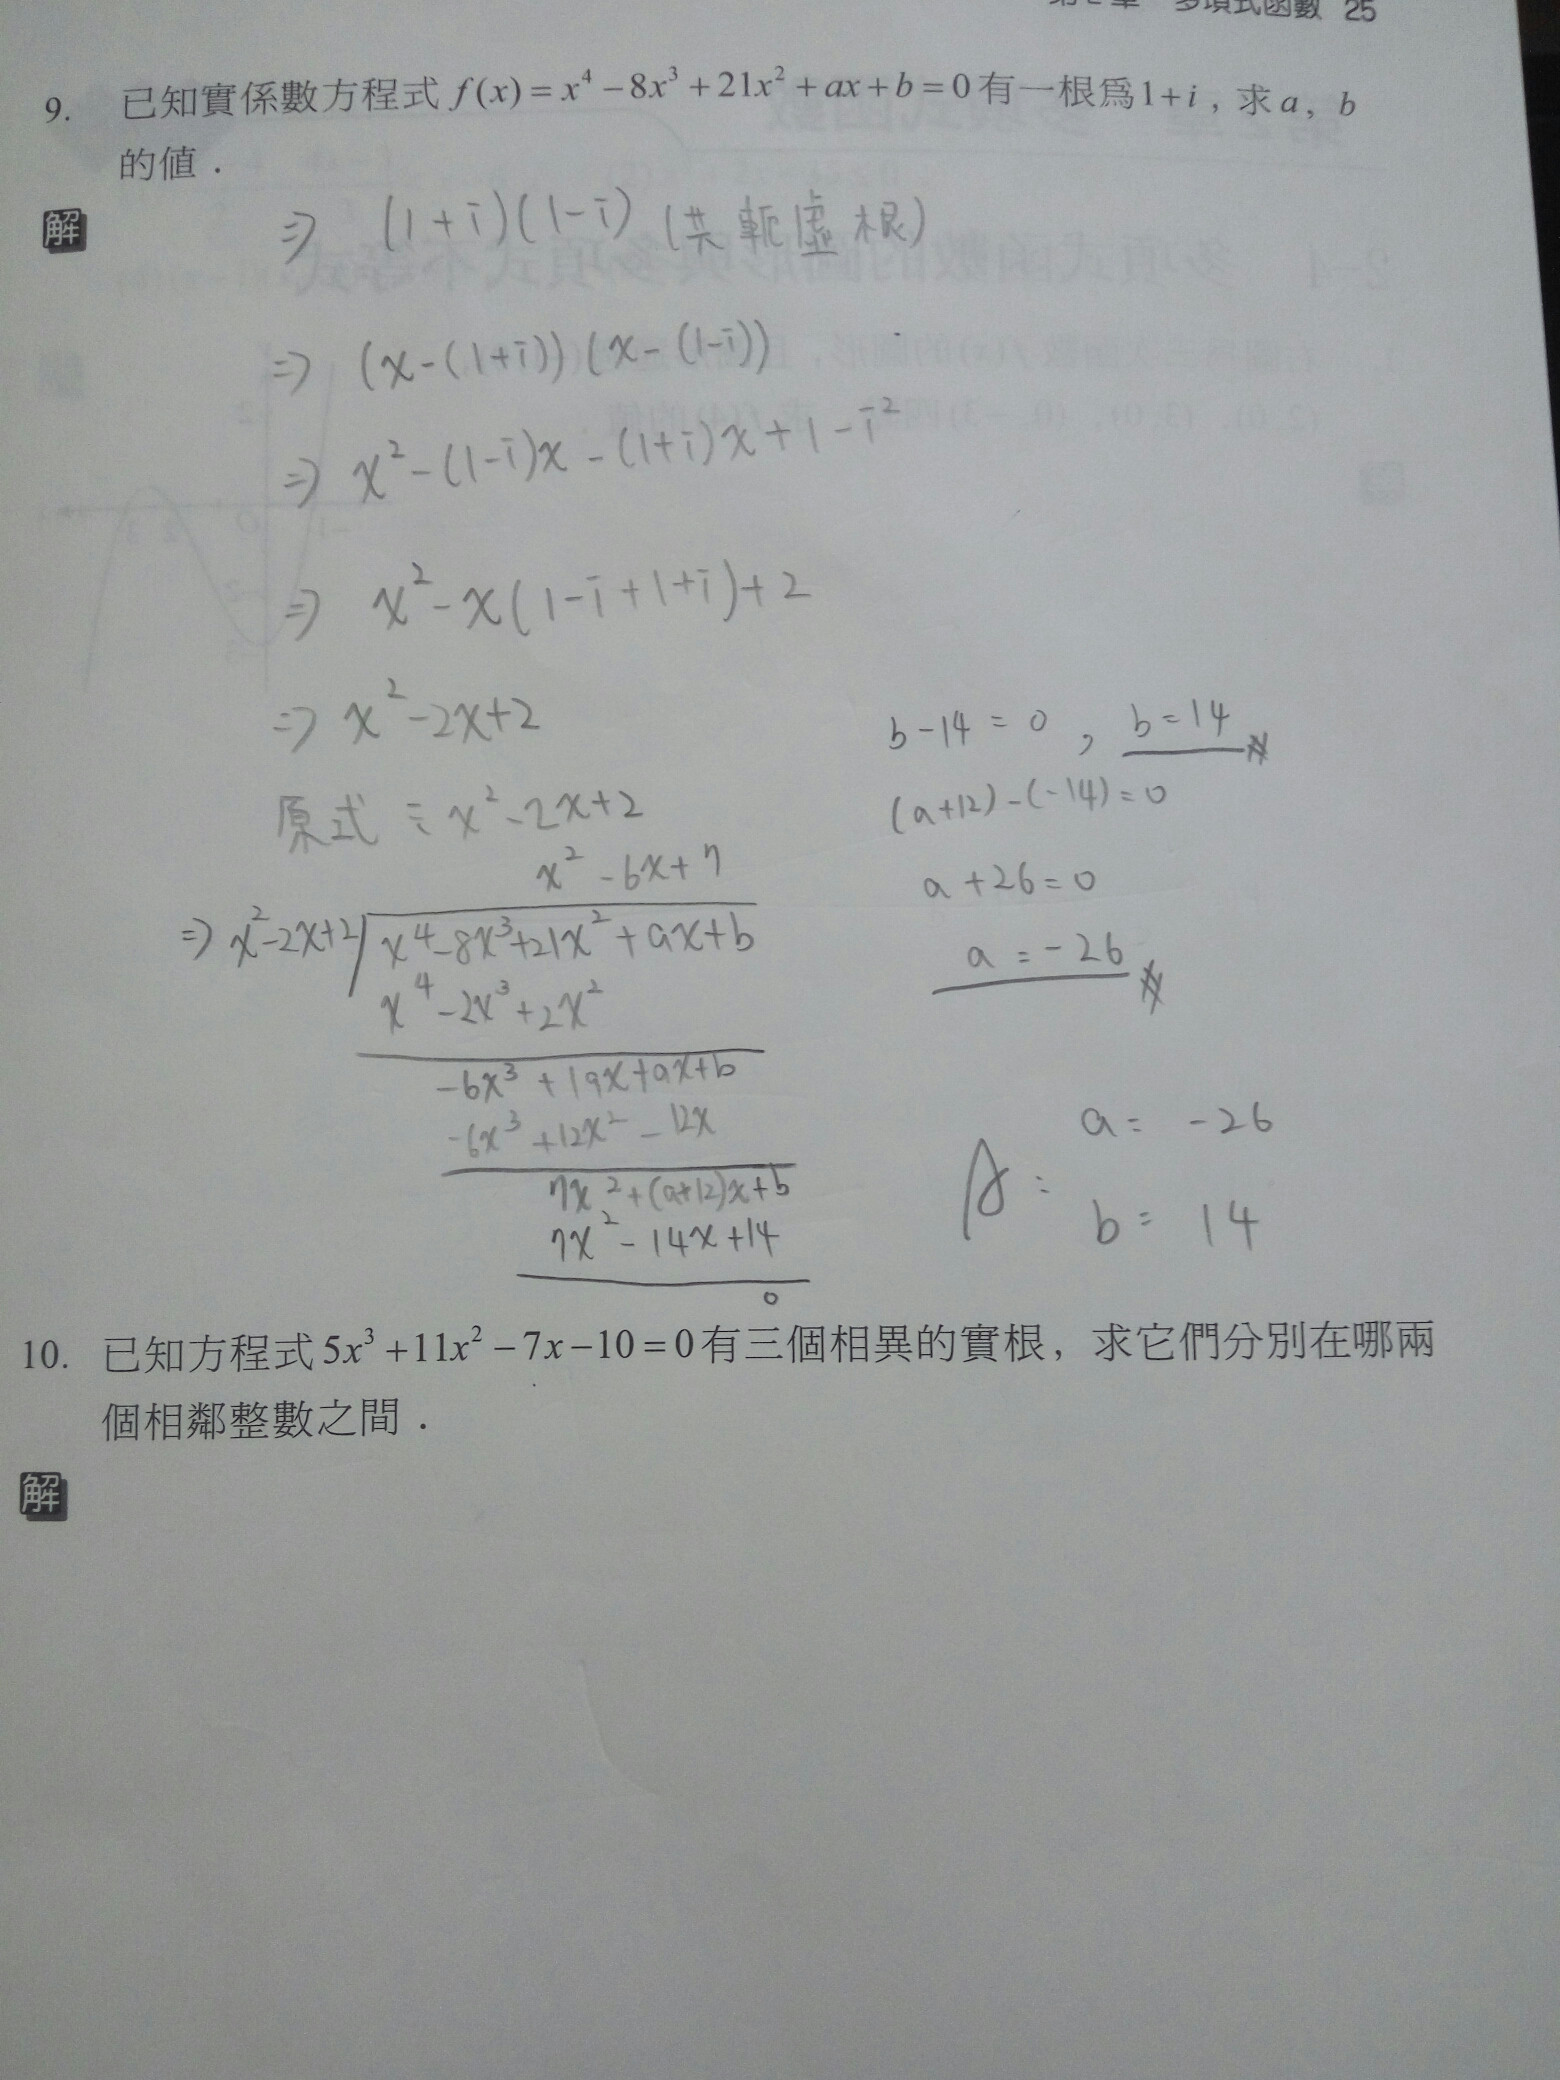 多項式函數 25
9. 已知實係數方程式 f(x) = x⁴ − 8x³ + 21x² + ax + b = 0 有一根為 1+i，求 a，b
的值．
解
⇒ (1+i)(1-i) (共軛虛根)
⇒ (x-(1+i))(x-(1-i))
⇒ x²-(1-i)x-(1+i)x+1-i²
⇒ x²-x(1-i+1+i)+2
⇒ x²-2x+2
原式 ÷ x²-2x+2
x²-6x+7
⇒ x²-2x+2 x⁴-8x³+21x²+ax+b
x⁴-2x³+2x²
-6x³+19x+ax+b
-6x³+12x²-12x
7x²+(a+12)x+b
7x²-14x+14
0
b-14=0, b=14
(a+12)-(-14)=0
a+26=0
a=-26
A: a= -26
b= 14
10. 已知方程式 5x³ + 11x² − 7x − 10 = 0 有三個相異的實根，求它們分別在哪兩
個相鄰整數之間．
解